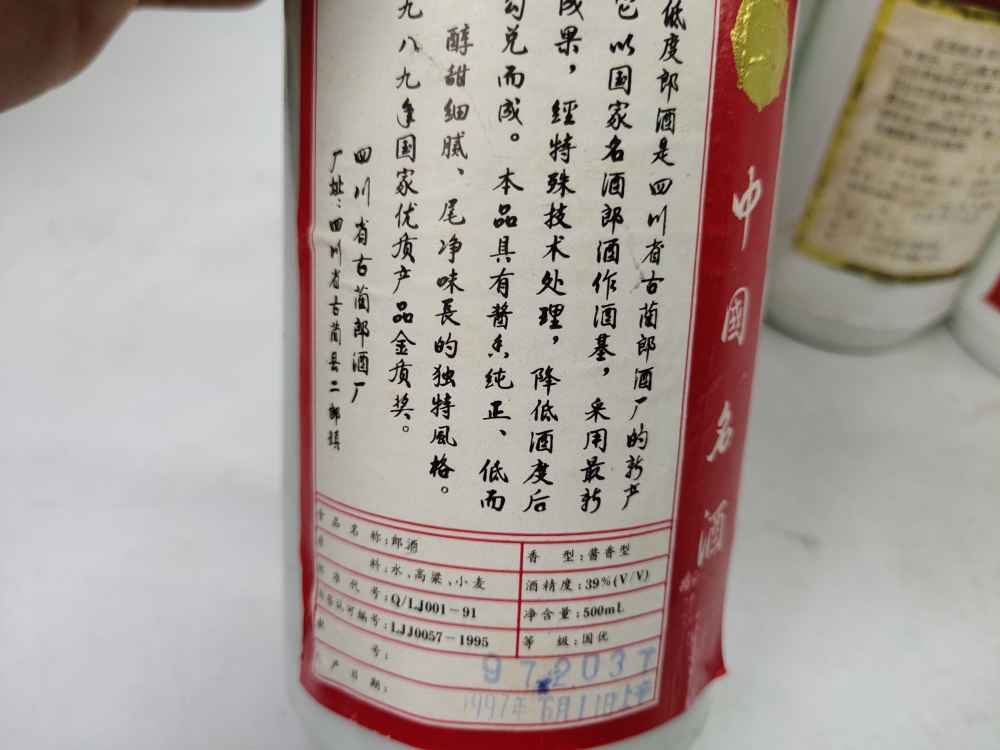 低度郎酒是四川省古蔺郎酒厂的新产
它以国家名酒郎酒作酒基，采用最新
成果，經特殊技术处理，降低酒度后
勾兑而成。本品具有醬香纯正、低而
醇甜细腻、尾净味長的独特風格。
九八九年国家优质产品金质奖。
四川省古蔺郎酒厂
厂址：四川省古蔺县二郎镇
食品名称：郎酒
香型：酱香型
料：水、高粱、小麦
酒精度：39%(V/V)
标准代号：Q/LJ001-91
净含量：500mL
认可编号：LJJ0057-1995
等级：国优
号：
97 2037
产日期：
1997年6月11日
中国名酒